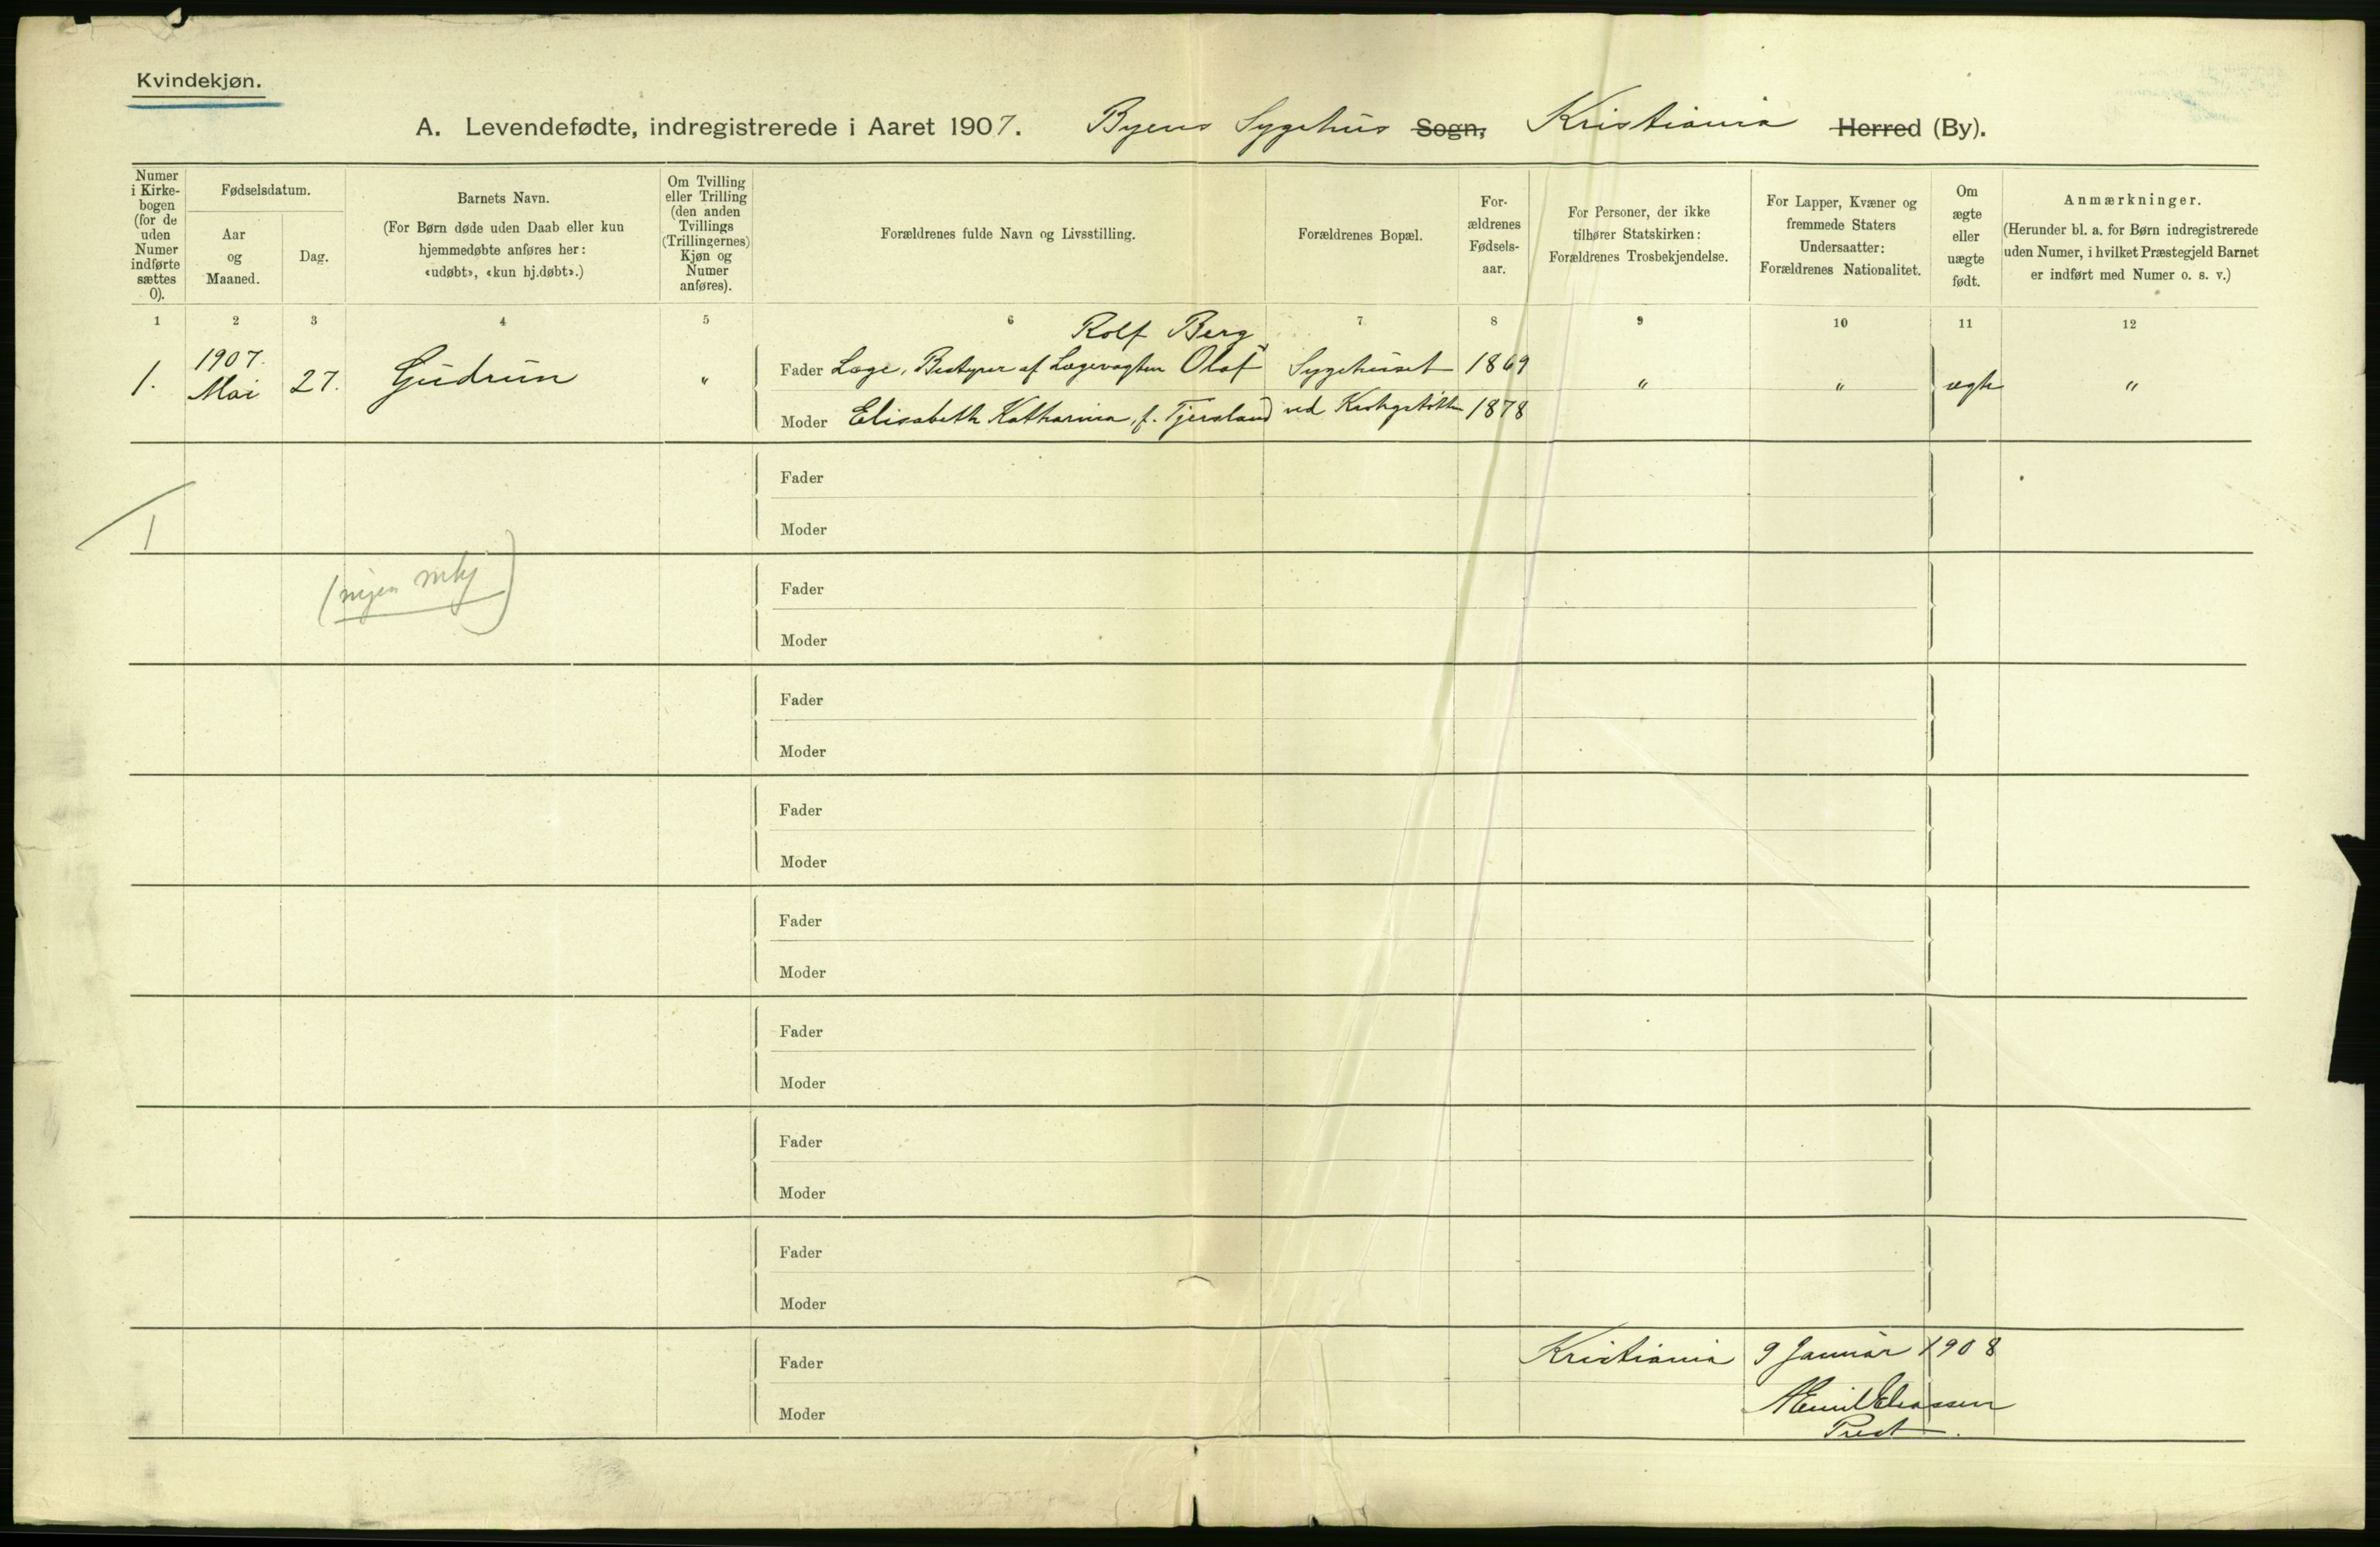 Kvindekjøn.
A. Levendefødte, indregistrerede i Aaret 1907. Byens Sygehus Sogn, Kristiania Herred (By).
Numer
i Kirke-
bogen
(for de
uden
Numer
indførte
sættes
0).
Fødselsdatum.
Aar
og
Maaned.
Dag.
Barnets Navn.
(For Børn døde uden Daab eller kun
hjemmedøbte anføres her:
«udøbt», «kun hj.døbt».)
Om Tvilling
eller Trilling
(den anden
Tvillings
(Trillingernes)
Kjøn og
Numer
anføres).
Forældrenes fulde Navn og Livsstilling.
Forældrenes Bopæl.
For-
ældrenes
Fødsels-
aar.
For Personer, der ikke
tilhører Statskirken:
Forældrenes Trosbekjendelse.
For Lapper, Kvæner og
fremmede Staters
Undersaatter:
Forældrenes Nationalitet.
Om
ægte
eller
uægte
født.
Anmærkninger.
(Herunder bl. a. for Børn indregistrerede
uden Numer, i hvilket Præstegjeld Barnet
er indført med Numer o. s. v.)
1 2 3 4 5 6 7 8 9 10 11 12
1. 1907.
Mai 27. Gudrun "
Rolf Berg
Fader Læge, Bestyrer af Lægevagten Olaf Sygehuset 1869
Moder Elisabeth Katharina, f. Tjersland ved 1878
" " ægte "
Fader
Moder
1
Fader
Moder
Fader
Moder
Fader
Moder
Fader
Moder
Fader
Moder
Fader
Moder
Fader
Moder
Fader
Moder
Kristiania 9 Januar 1908
Prest.